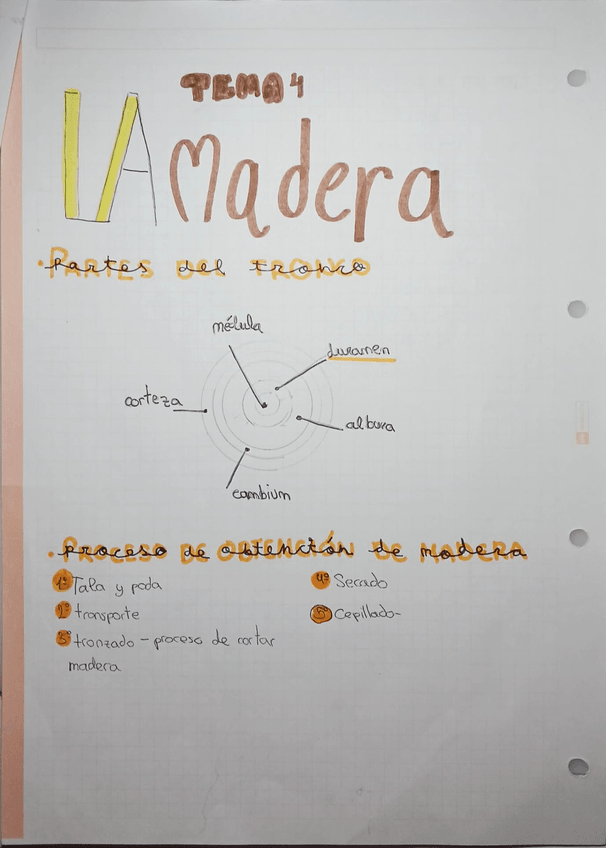 TEMA 4
LA Madera
· Partes del tronco
médula
duramen
corteza
albura
cambium
· Proceso de obtención de madera
1º Tala y poda
2º transporte
3º tronzado - proceso de cortar
madera
4º Secado
5º Cepillado-